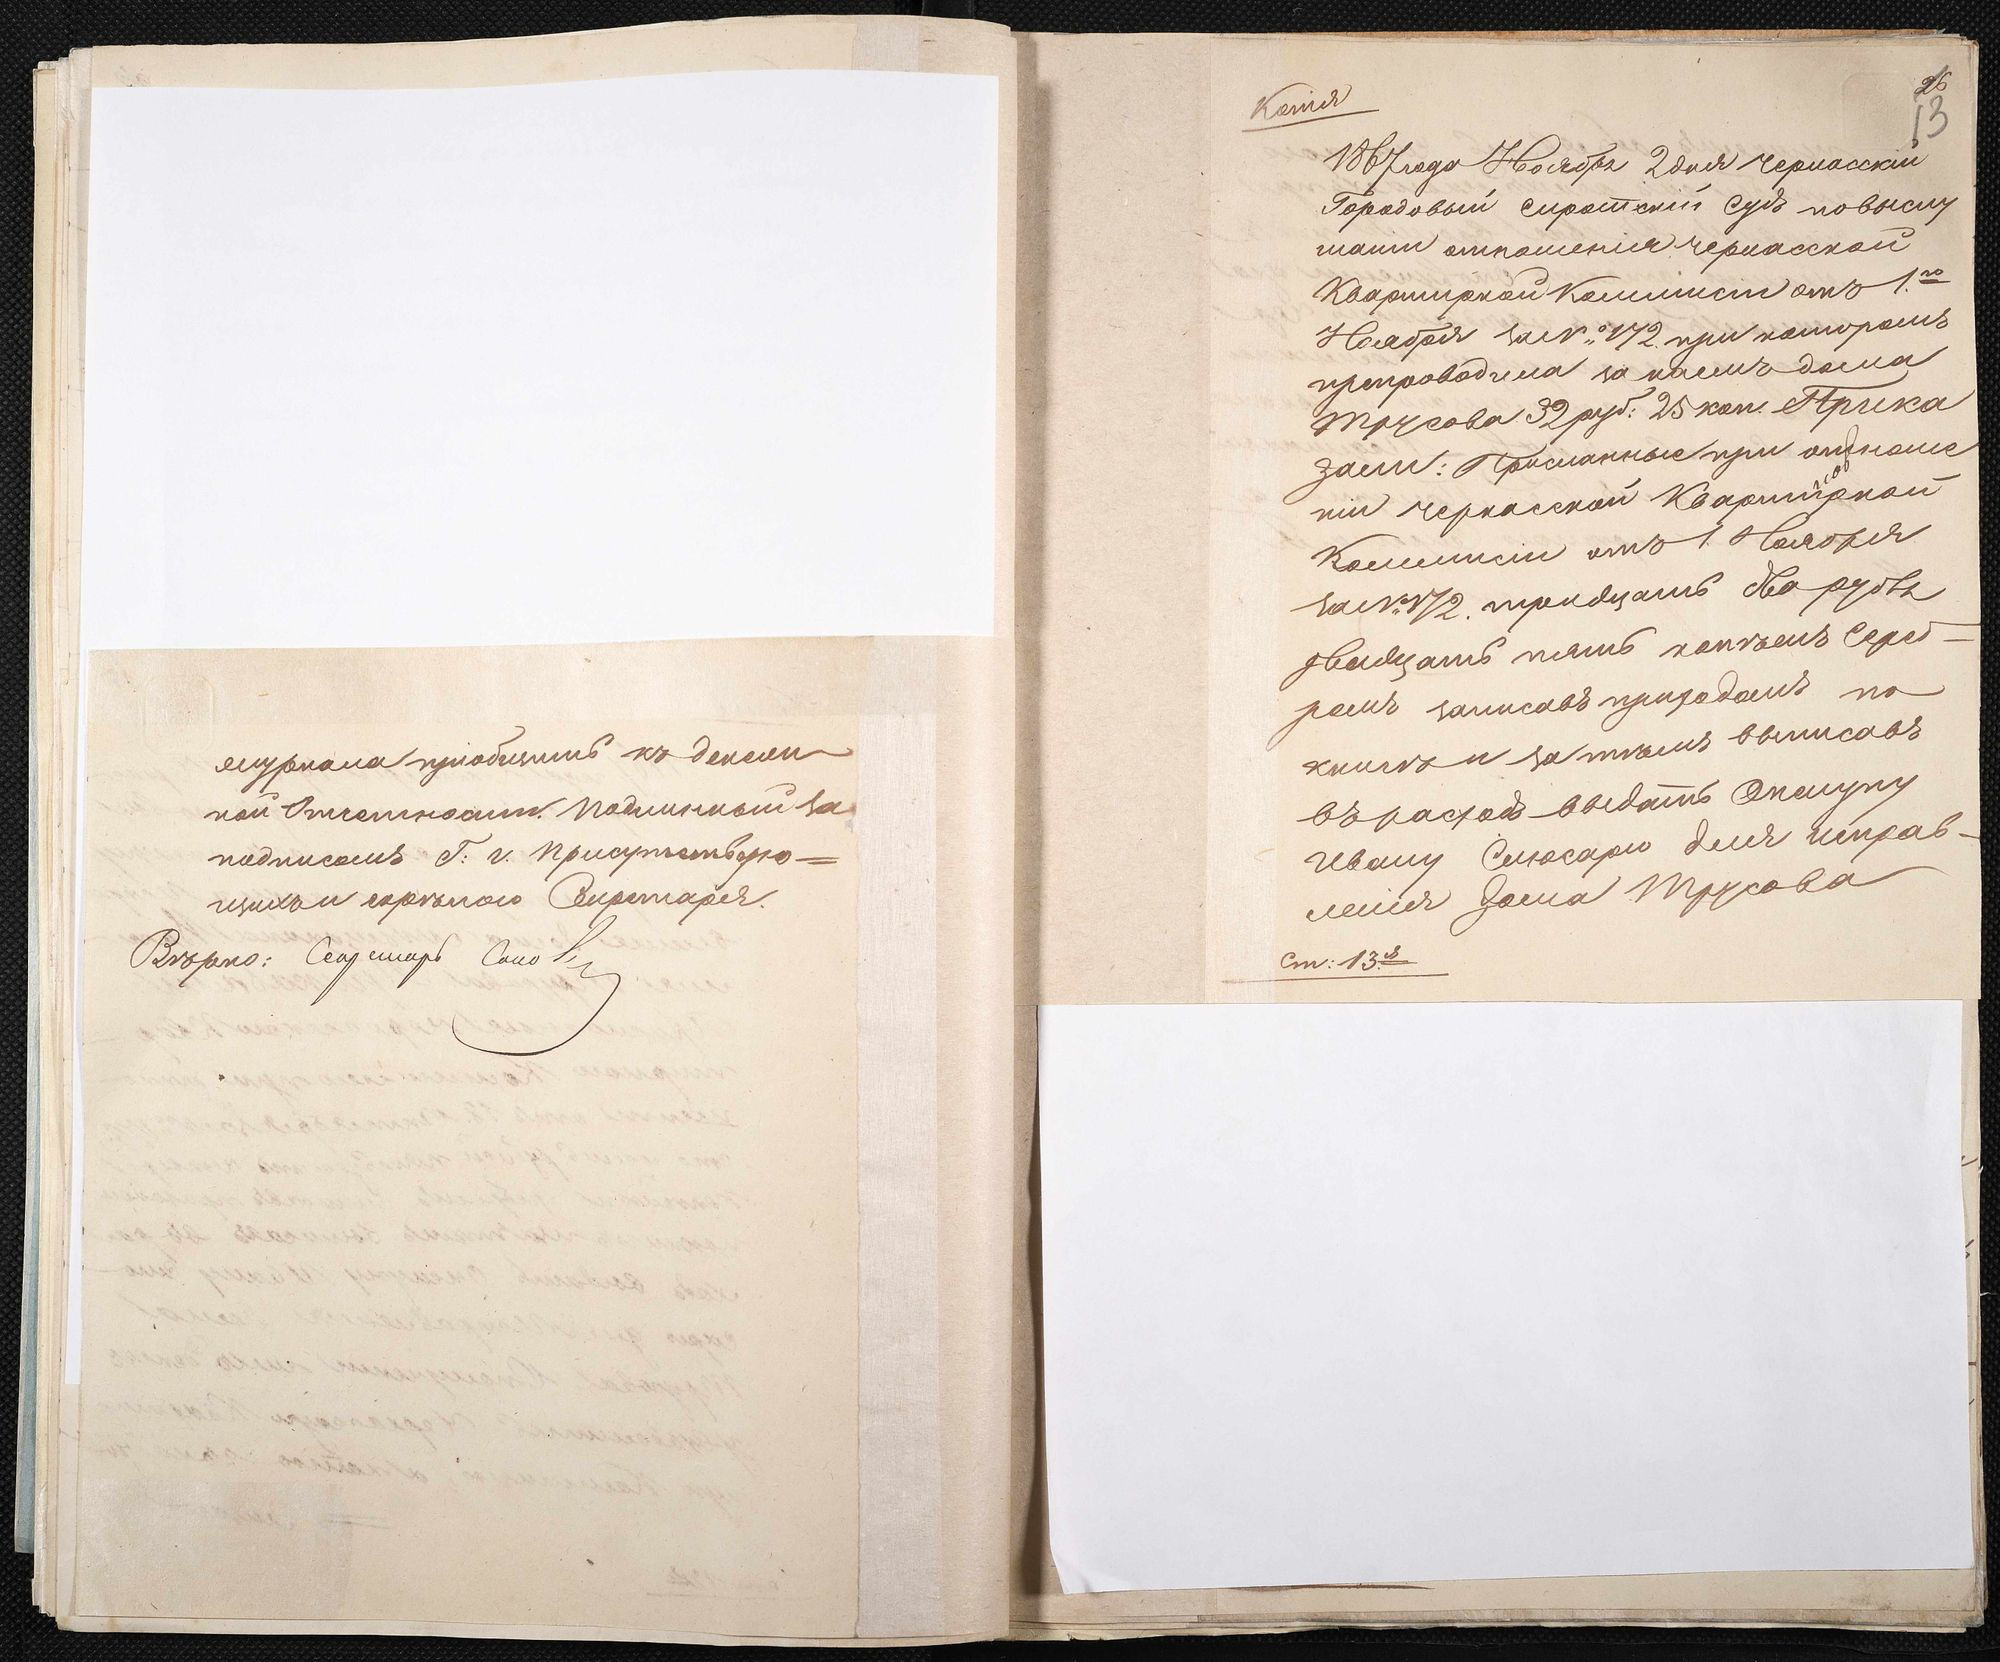 журнала пріобщить къ денеж
ной Отчетности. Подлинный за
подписомъ Г: г. Присутствую=
щихъ и скрѣпою Секретаря.
Вѣрно: Секретарь
Копія
26
13
1867 года Ноября 2 дня Черкасскій
Городовый сиротскій Судъ по выслу
шаніи отношенія Черкасской
Квартирной Коммисіи отъ 1.го
Ноября за №: 172. при которомъ
препроводила за наемъ дома
Трусова 32 руб: 25 коп. Прика
зали: Присланные при отноше
ніи Черкасской Квартирной
Коммисіи отъ 1 Ноября
за №: 172. тридцать два рубля
двадцать пять копѣекъ Сереб-
ромъ записавъ приходомъ по
книгѣ и за тѣмъ выписавъ
въ расходъ выдать Опекуну
Ивану Слюсарю для исправ-
ленія дома Трусова
Ст: 13.я